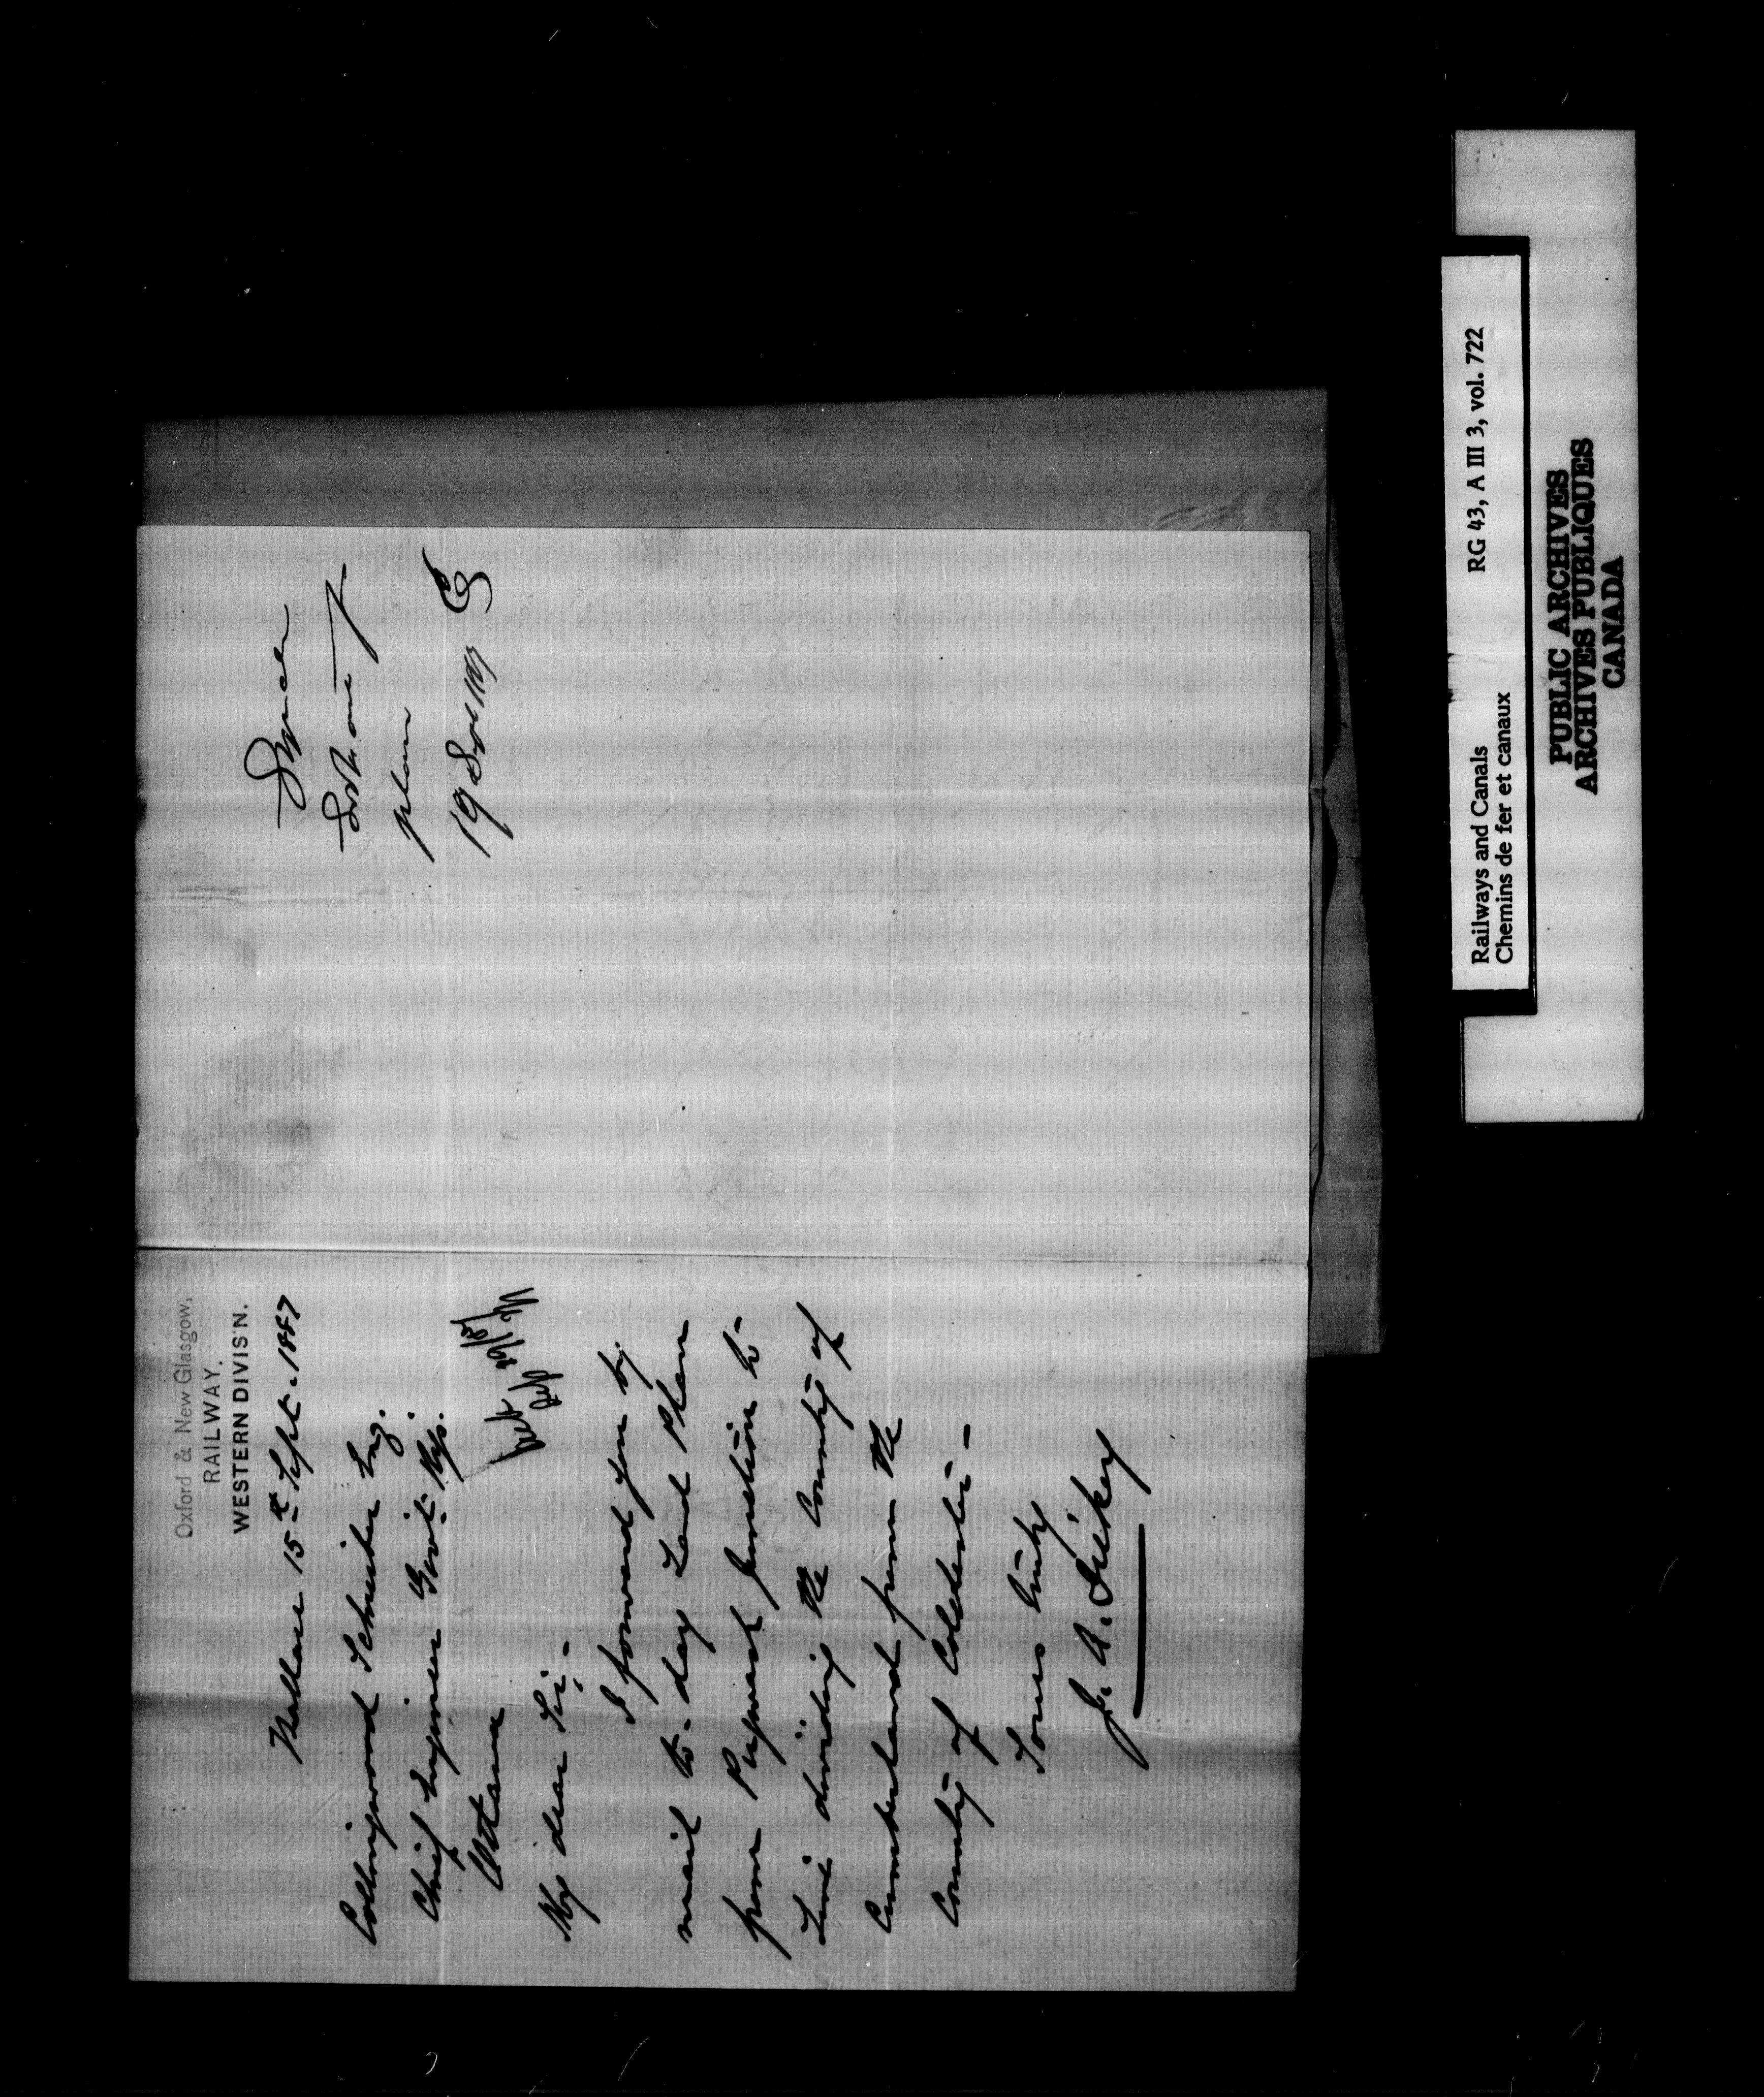 Oxford & New Glasgow,
RAILWAY.
WESTERN DIVIS'N.
Wallace 15th Sept. 1887
Collingwood Schreiber Esq.
Chief Engineer Govt. Rys.
Ottawa
My dear Sir,-
I forward you by
mail to-day Land Plan
from Pugwash Junction to
Line dividing the County of
Cumberland from the
County of Colchester-
Yours truly
J. A. Dickey
plan
19
Railways and Canals
Chemins de fer et canaux
RG 43, A III 3, vol. 722
PUBLIC ARCHIVES
ARCHIVES PUBLIQUES
CANADA